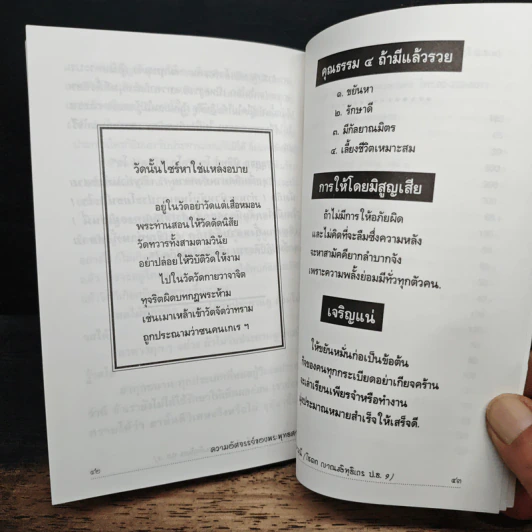 วัดนั้นไซร้หาใช่แหล่งอบาย
อยู่ในวัดอย่าวัดแต่เสื่อหมอน
พระท่านสอนให้วัดตัดนิสัย
วัดทวารทั้งสามตามวินัย
อย่าปล่อยให้วิบัติวัดให้งาม
ไปในวัดวัดกายวาจาจิต
ทุจริตผิดบทกฎพระห้าม
เช่นเมาเหล้าเข้าวัดจัดว่าทราม
ถูกประณามว่าซนคนเกเร ฯ
๔๒
คุณธรรม ๔ ถ้ามีแล้วรวย
๑. ขยันหา
๒. รักษาดี
๓. มีกัลยาณมิตร
๔. เลี้ยงชีวิตเหมาะสม
การให้โดยมิสูญเสีย
ถ้าไม่มีการให้อภัยผิด
และไม่คิดที่จะลืมซึ่งความหลัง
จะหาสามัคคียากลำบากจัง
เพราะความพลั้งย่อมมีทั่วทุกตัวคน.
เจริญแน่
ให้ขยันหมั่นก่อเป็นข้อต้น
กิจของคนทุกกระเบียดอย่าเกียจคร้าน
และเล่าเรียนเพียรจำหรือทำงาน
ประมาณหมายสำเร็จให้เสร็จดี.
ป.ธ. ๙)
๔๓